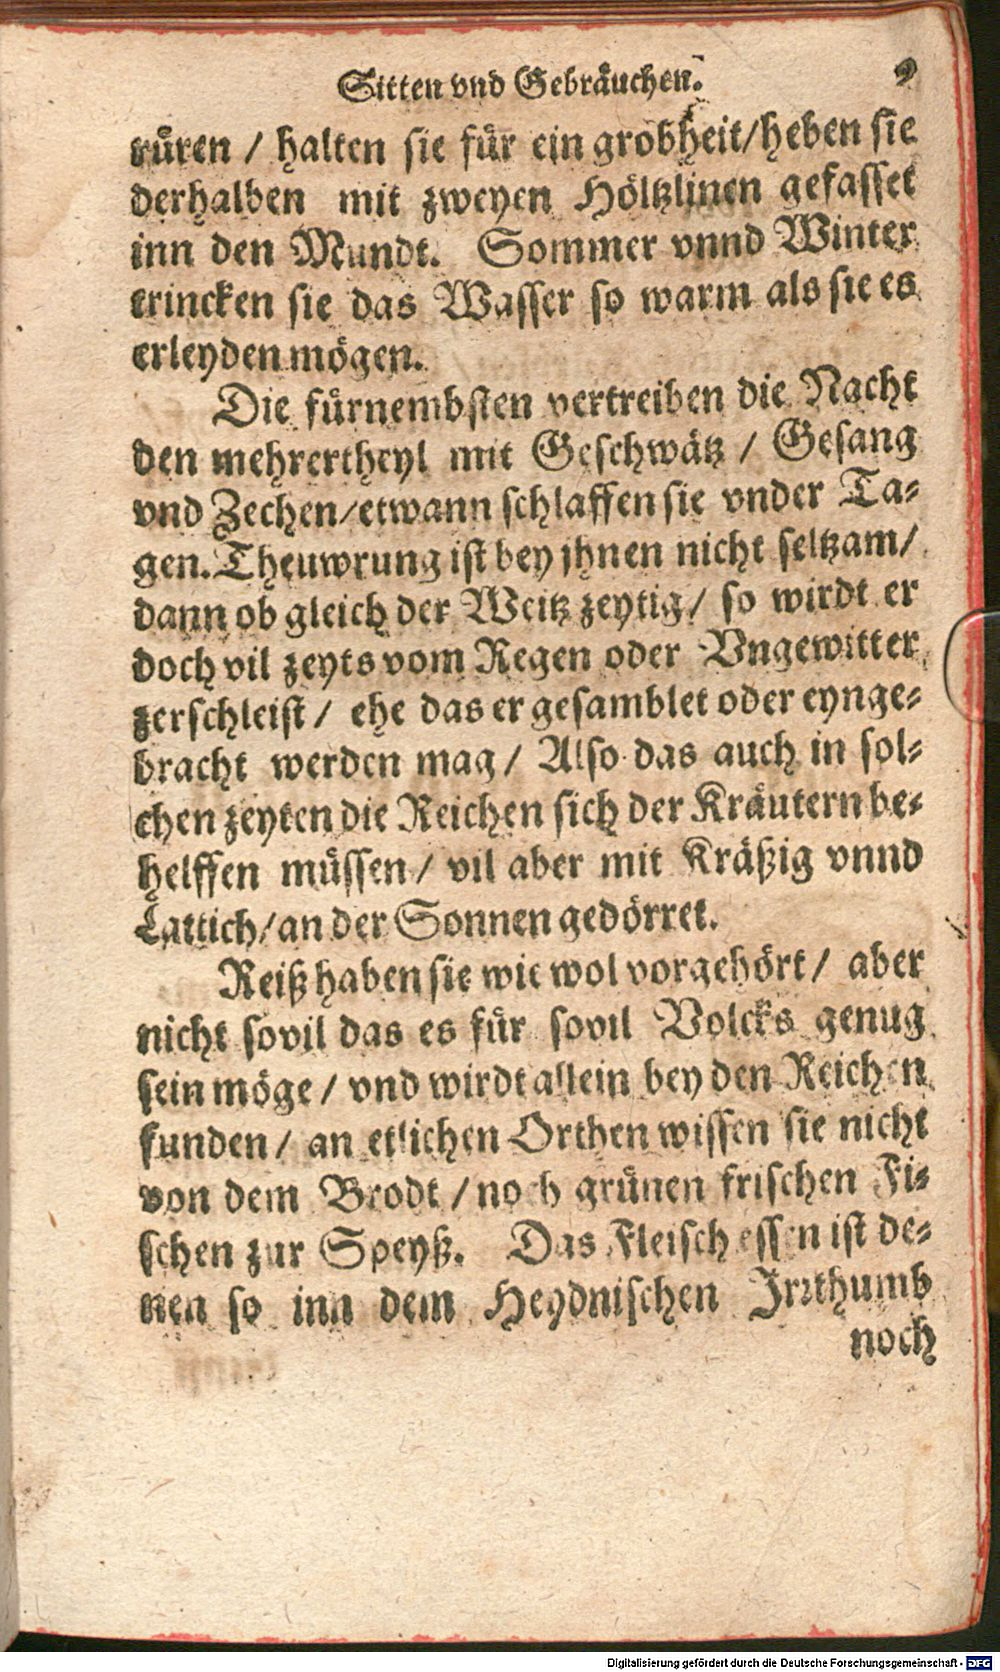 Sitten vnd Gebräuchen. 9
růren / halten sie für ein grobheit/heben sie
derhalben mit zweyen Höltzlinen gefasset
inn den Mundt. Sommer vnnd Winter
trincken sie das Wasser so warm als sie es
erleyden mögen.
Die fürnembsten vertreiben die Nacht
den mehrertheyl mit Geschwätz / Gesang
vnd Zechen/etwann schlaffen sie vnder Ta⸗
gen. Theuwrung ist bey jhnen nicht seltzam/
dann ob gleich der Weitz zeytig/ so wirdt er
doch vil zeyts vom Regen oder Vngewitter
zerschleist / ehe das er gesamblet oder eynge⸗
bracht werden mag / Also das auch in sol⸗
chen zeyten die Reichen sich der Kräutern be⸗
helffen müssen / vil aber mit Kräßig vnnd
Lattich/an der Sonnen gedörret.
Reiß haben sie wie wol vorgehört / aber
nicht sovil das es für sovil Volcks genug
sein möge / vnd wirdt allein bey den Reichen
funden / an etlichen Orthen wissen sie nicht
von dem Brodt / noch grünen frischen Fi⸗
schen zur Speyß. Das Fleisch essen ist de⸗
nen so inn dem Heydnischen Jrrthumb
noch
Digitalisierung gefördert durch die Deutsche Forschungsgemeinschaft - DFG